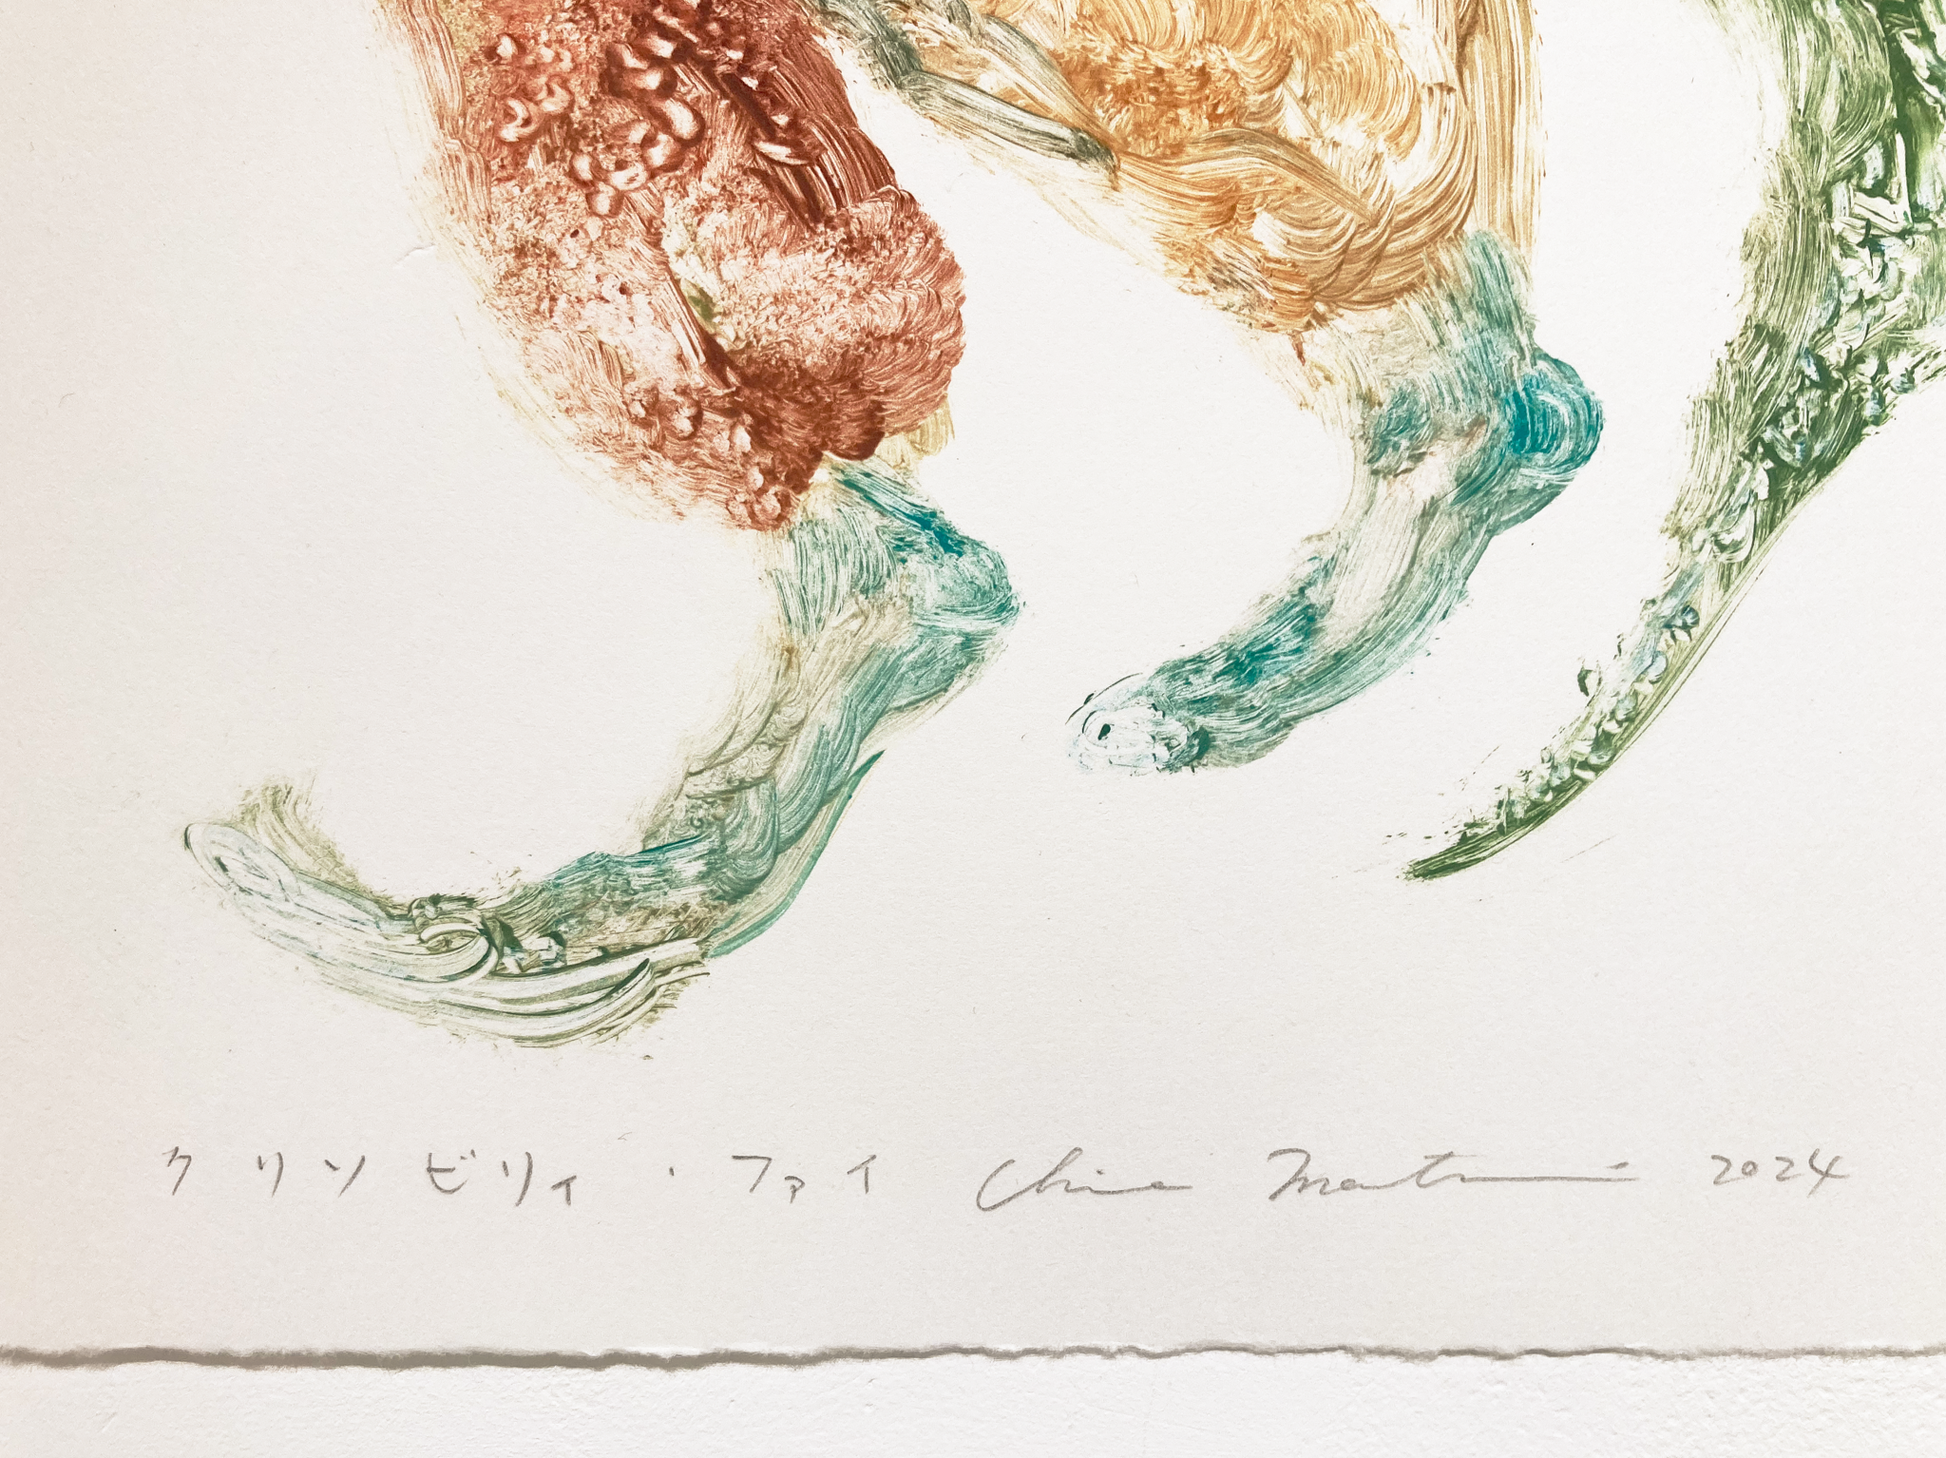 クリソビリィ・ファイ Chie Matsui 2024